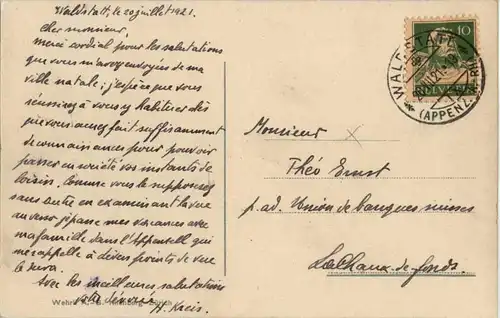 Waldstatt, le 20 juillet 1921.
Cher monsieur,
Merci cordial pour les salutations
que vous m'avez envoyées de ma
ville natale; j'espère que vous
réussirez à vous y habituer dès
que vous aurez fait suffisamment
de connaissances pour pouvoir
passer en société vos instants de
loisirs. Comme vous le supposerez
sans entre en examinant la vue
au verso je passe mes vacances avec
ma famille dans l'Appenzell qui
me rappelle à divers points de vue
le Jura.
Avec les meilleures salutations
votre dévoué H. Kreis.
Wehrli A.-G. Kilchberg-Zürich
10
HELVETIA
WALDSTATT
20.VII.21
(APPENZ. A. RH.)
Monsieur
Théo Ernst
p. ad. Union de banques suisses
La Chaux-de-fonds.